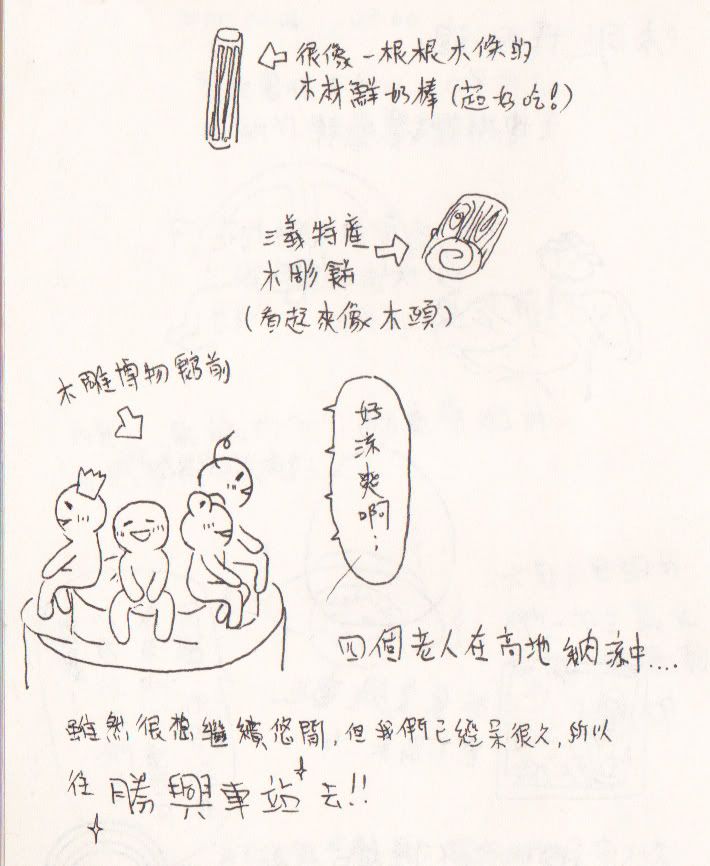 很像一根根木條的
木材鮮奶棒(超好吃!)
三義特產
木彫餅
(看起來像木頭)
木雕博物館前
好涼爽啊…
四個老人在高地納涼中....
雖然很想繼續悠閒,但我們已經呆很久,所以
往勝興車站去!!